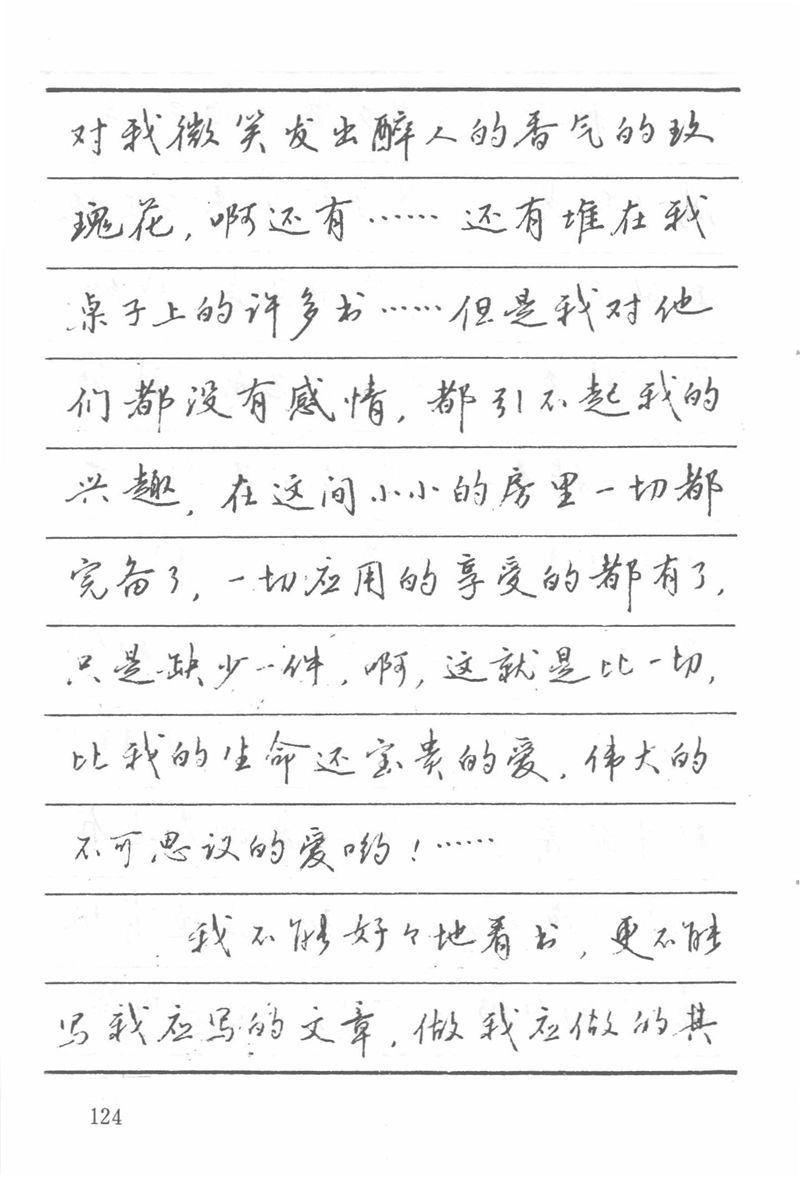 对我微笑发出醉人的香气的玫
瑰花，啊还有……还有堆在我
桌子上的许多书……但是我对他
们都没有感情，都引不起我的
兴趣，在这间小小的房里一切都
完备了，一切应用的享受的都有了，
只是缺少一件，啊，这就是比一切，
比我的生命还宝贵的爱，伟大的
不可思议的爱哟！……
我不能好々地看书，更不能
写我应写的文章，做我应做的其
124